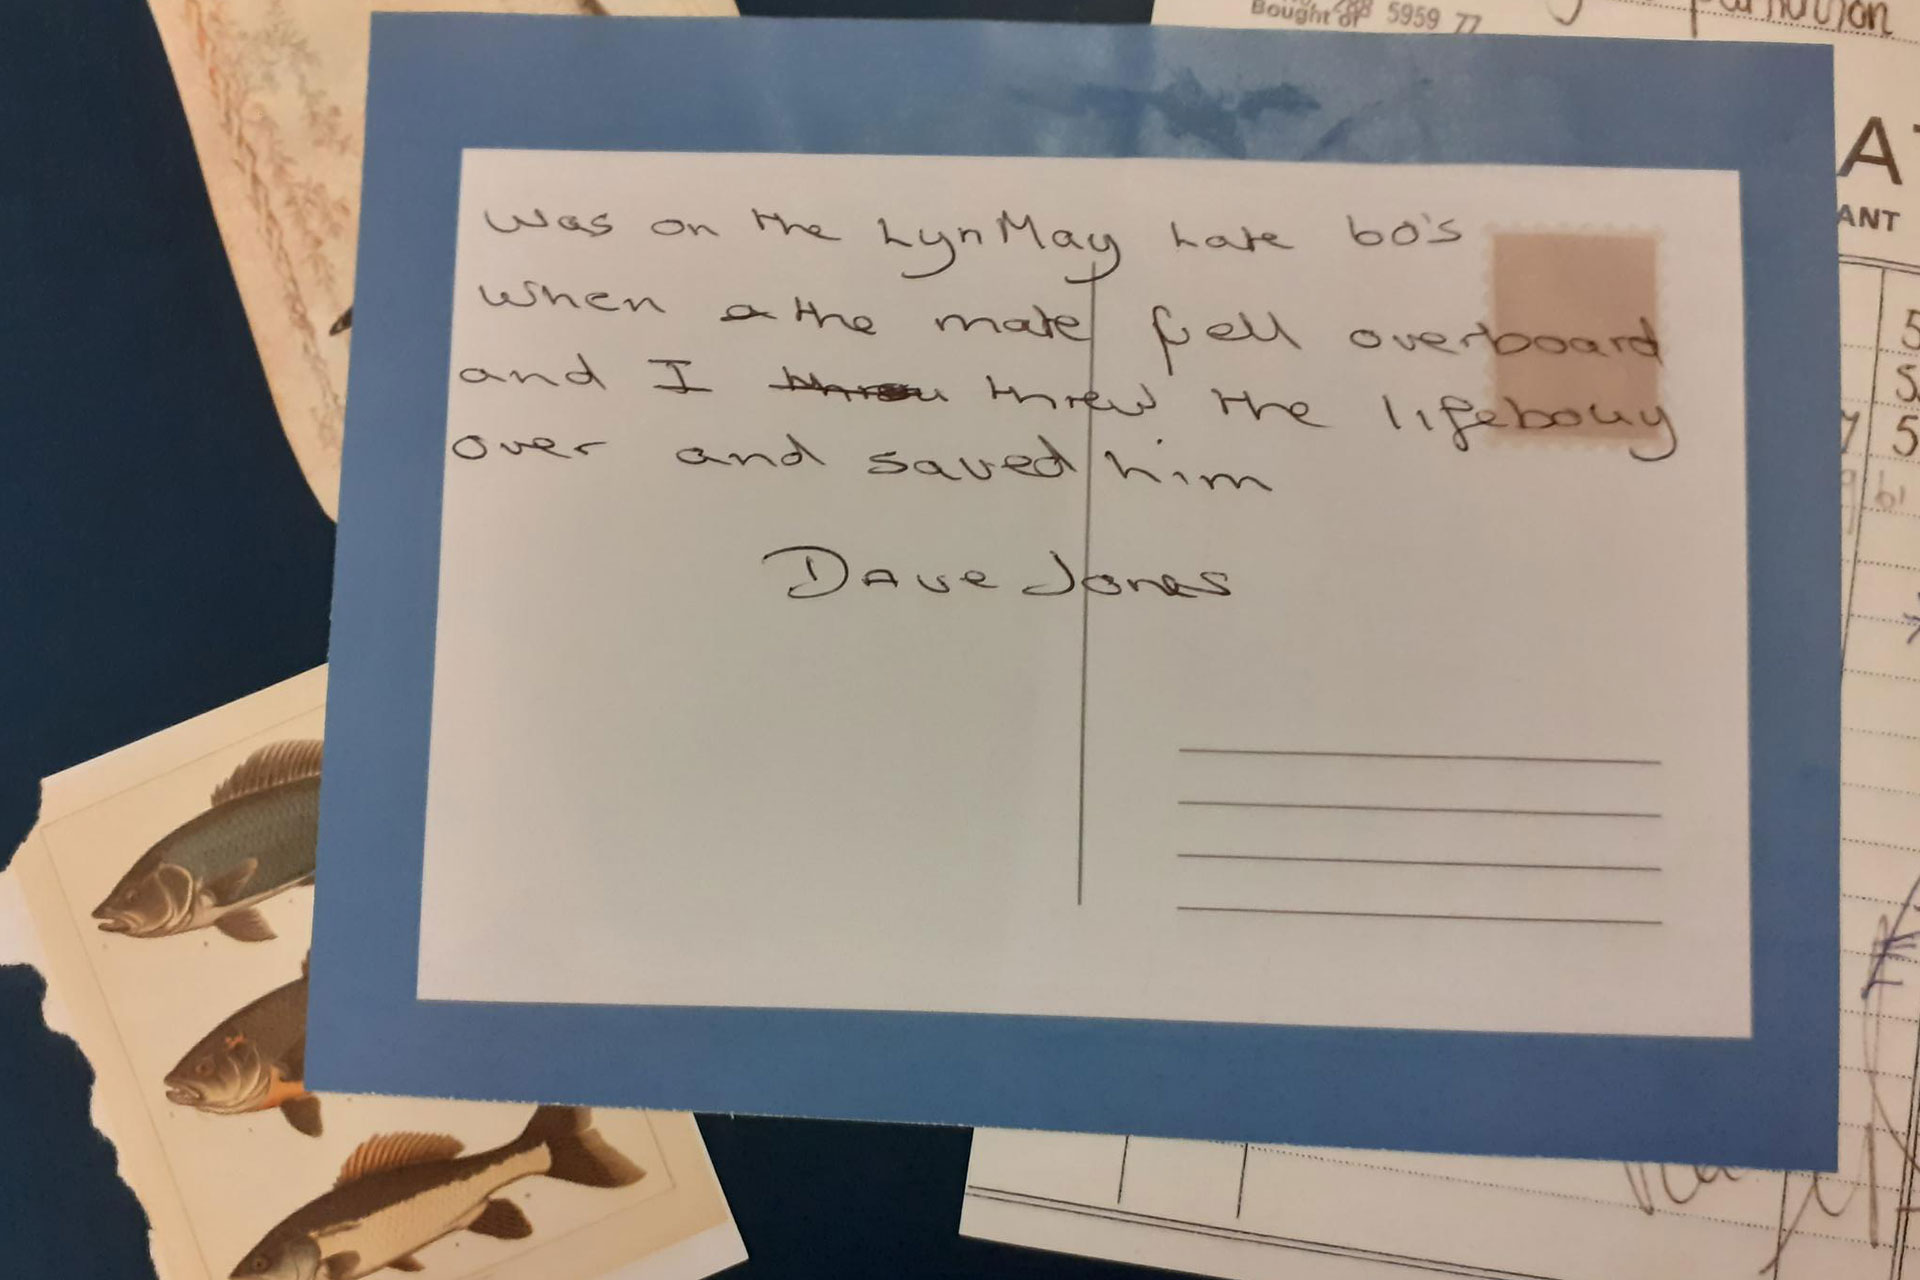 Bought of 5959 77
was on the LynMay Late 60's
when a the mate fell overboard
and I threw the lifebouy
over and saved him
Dave Jones
A
ANT
5
5
5